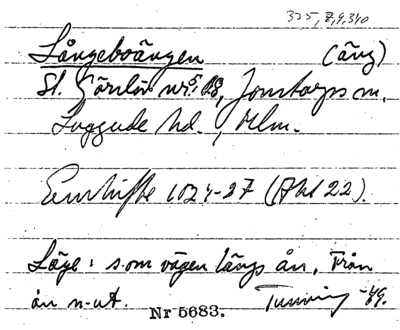 335, 8,9,340
Långeboängen (äng)
St. Görslöv nr. 5, 18, Jonstorps sn.
Luggude hd., Mlm.
Enskifte 1824-27 (Akt 22).
Läge: s.om vägen längs ån, från
ån n-ut. Tunning -49.
Nr 5683.